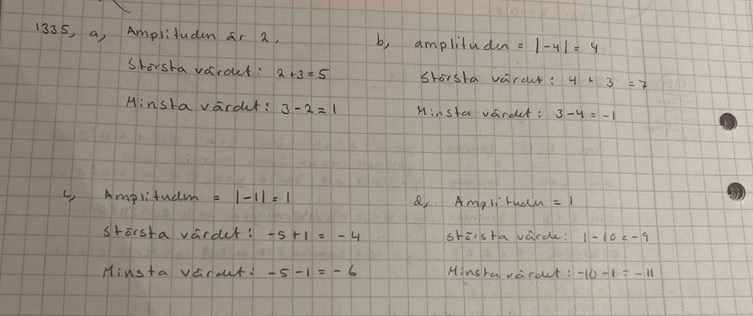 1335, a, Amplituden är 2.
Största värdet: 2+3=5
Minsta värdet: 3-2=1
b, amplituden = |-4| = 4
Största värdet: 4 + 3 = 7
Minsta värdet: 3-4 = -1
c, Amplituden = |-1| = 1
Största värdet: -5+1 = -4
Minsta värdet: -5-1 = -6
d, Amplituden = 1
största värde: 1-10 = -9
Minsta värdet: -10-1 = -11